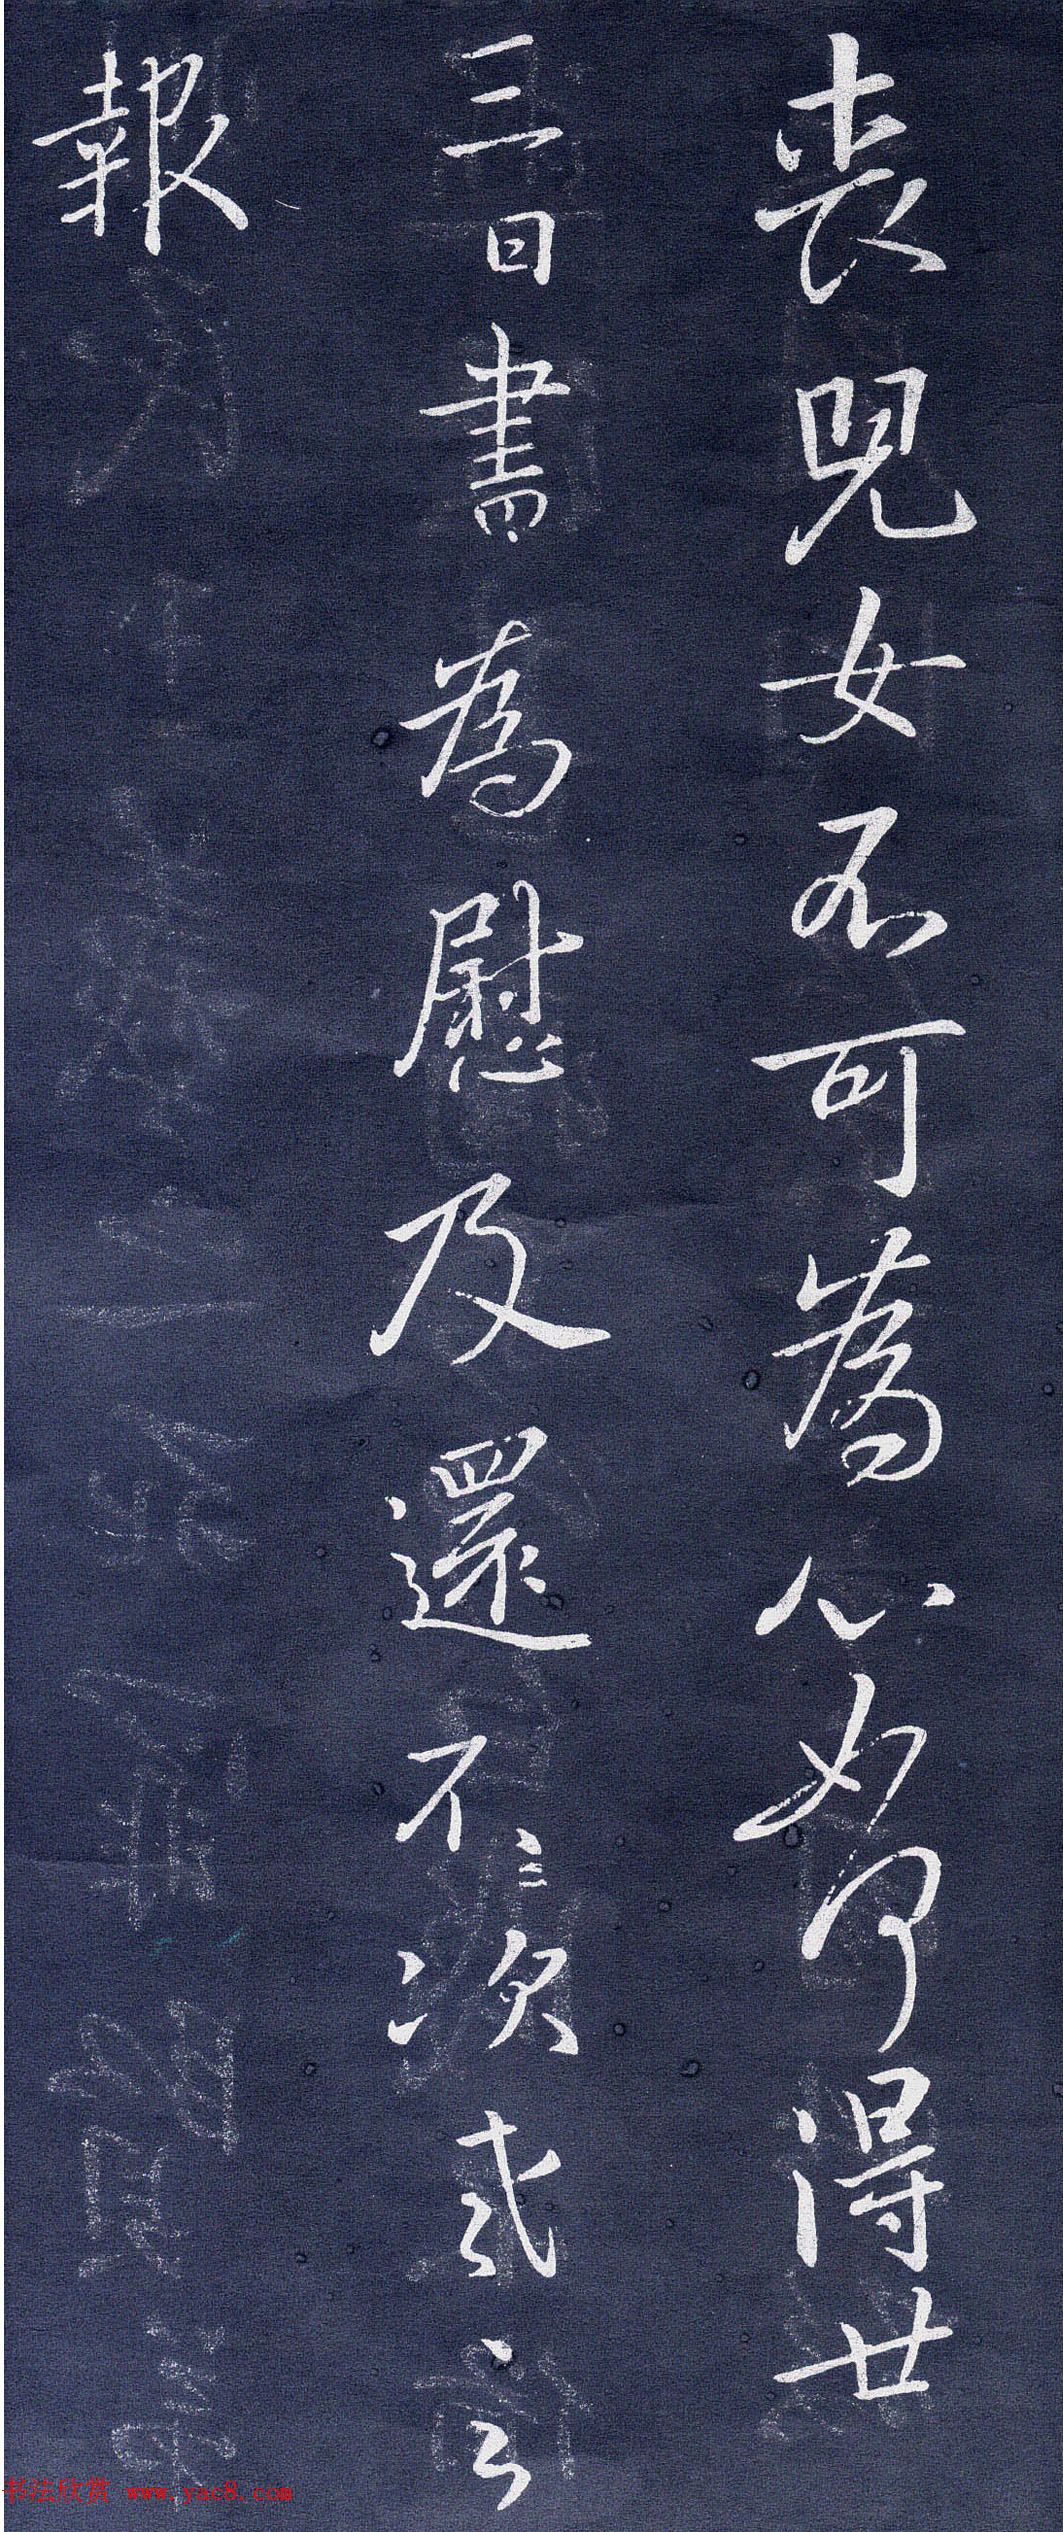 喪兒女不可為心如何得廿
三日書為慰及還不次式之
報
书法欣赏 www.yac8.com